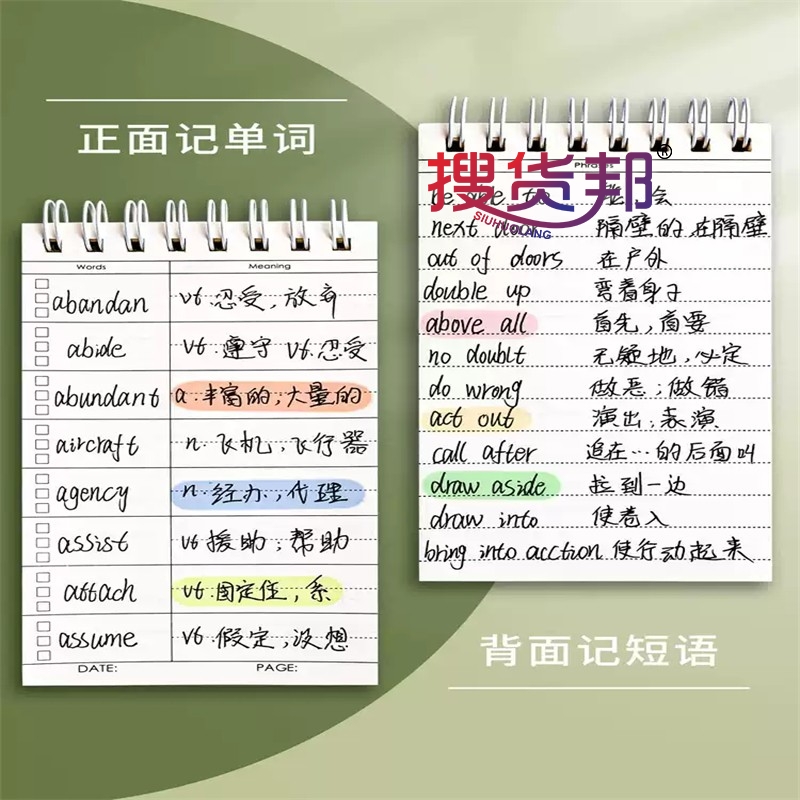 正面记单词
Words Meaning
abandan vt.忍受,放弃
abide vt.遵守 vt.忍受
abundant a.丰富的,大量的
aircraft n.飞机,飞行器
agency n.经办,代理
assist vt援助;帮助
attach vt.固定住,系
assume vt.假定,设想
DATE: PAGE:
搜货邦®
SIUHUOBANG
Phrases
be able to 会
next door 隔壁的 在隔壁
out of doors 在户外
double up 弯着身子
above all 首先,首要
no doublt 无疑地,必定
do wrong 做恶;做错
act out 演出;表演
call after 追在…的后面叫
draw aside 拉到一边
draw into 使卷入
bring into acction 使行动起来
背面记短语